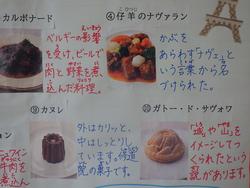 カルボナード
ベルギーの影響
を受け、ビールで
肉と野菜を煮
込んだ料理。
④仔羊のナヴァラン
かぶを
あらわす「ナヴェ」と
いう言葉から名
づけられた。
⑨カヌレ
外はカリッと、
中はしっとりし
ています。修道
院の菓子です。
⑩ガトー・ド・サヴォワ
「城や山」を
イメージしてつ
くられたという
説があります。
牛肉を
込ん